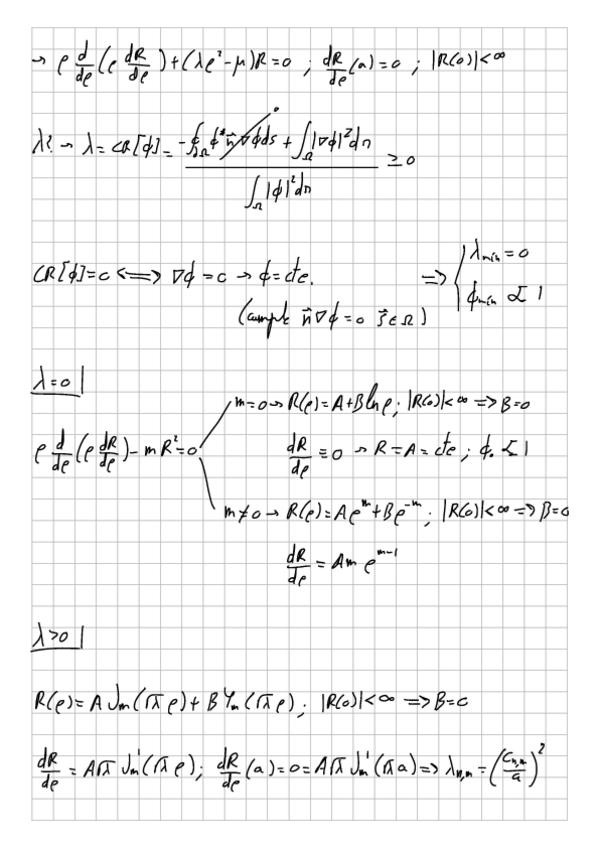 → ρ d/dρ (ρ dR/dρ) + (λρ² - μ)R = 0 ; dR/dρ (a) = 0 ; |R(0)| < ∞
λ? → λ = CR[ϕ] = (-∮_∂Ω ϕ* n⃗ ∇ϕ ds + ∫_Ω |∇ϕ|² dΩ) / (∫_Ω |ϕ|² dΩ) ≥ 0
CR[ϕ] = 0 ⟺ ∇ϕ = 0 → ϕ = cte. ⟹ { λ_min = 0
(cumple n⃗ ∇ϕ = 0 r⃗ ∈ Ω) ϕ_min ∝ 1
λ = 0 |
m = 0 → R(ρ) = A + B ln ρ ; |R(0)| < ∞ ⟹ B = 0
ρ d/dρ (ρ dR/dρ) - mR² = 0
dR/dρ = 0 → R = A = cte ; ϕ₀ ∝ 1
m ≠ 0 → R(ρ) = Aρ^m + Bρ^-m ; |R(0)| < ∞ ⟹ B = 0
dR/dρ = Am ρ^m-1
λ > 0 |
R(ρ) = A J_m(√λ ρ) + B Y_m(√λ ρ) ; |R(0)| < ∞ ⟹ B = 0
dR/dρ = A√λ J_m'(√λ ρ) ; dR/dρ (a) = 0 = A√λ J_m'(√λ a) ⟹ λ_n,m = (C_n,m / a)²